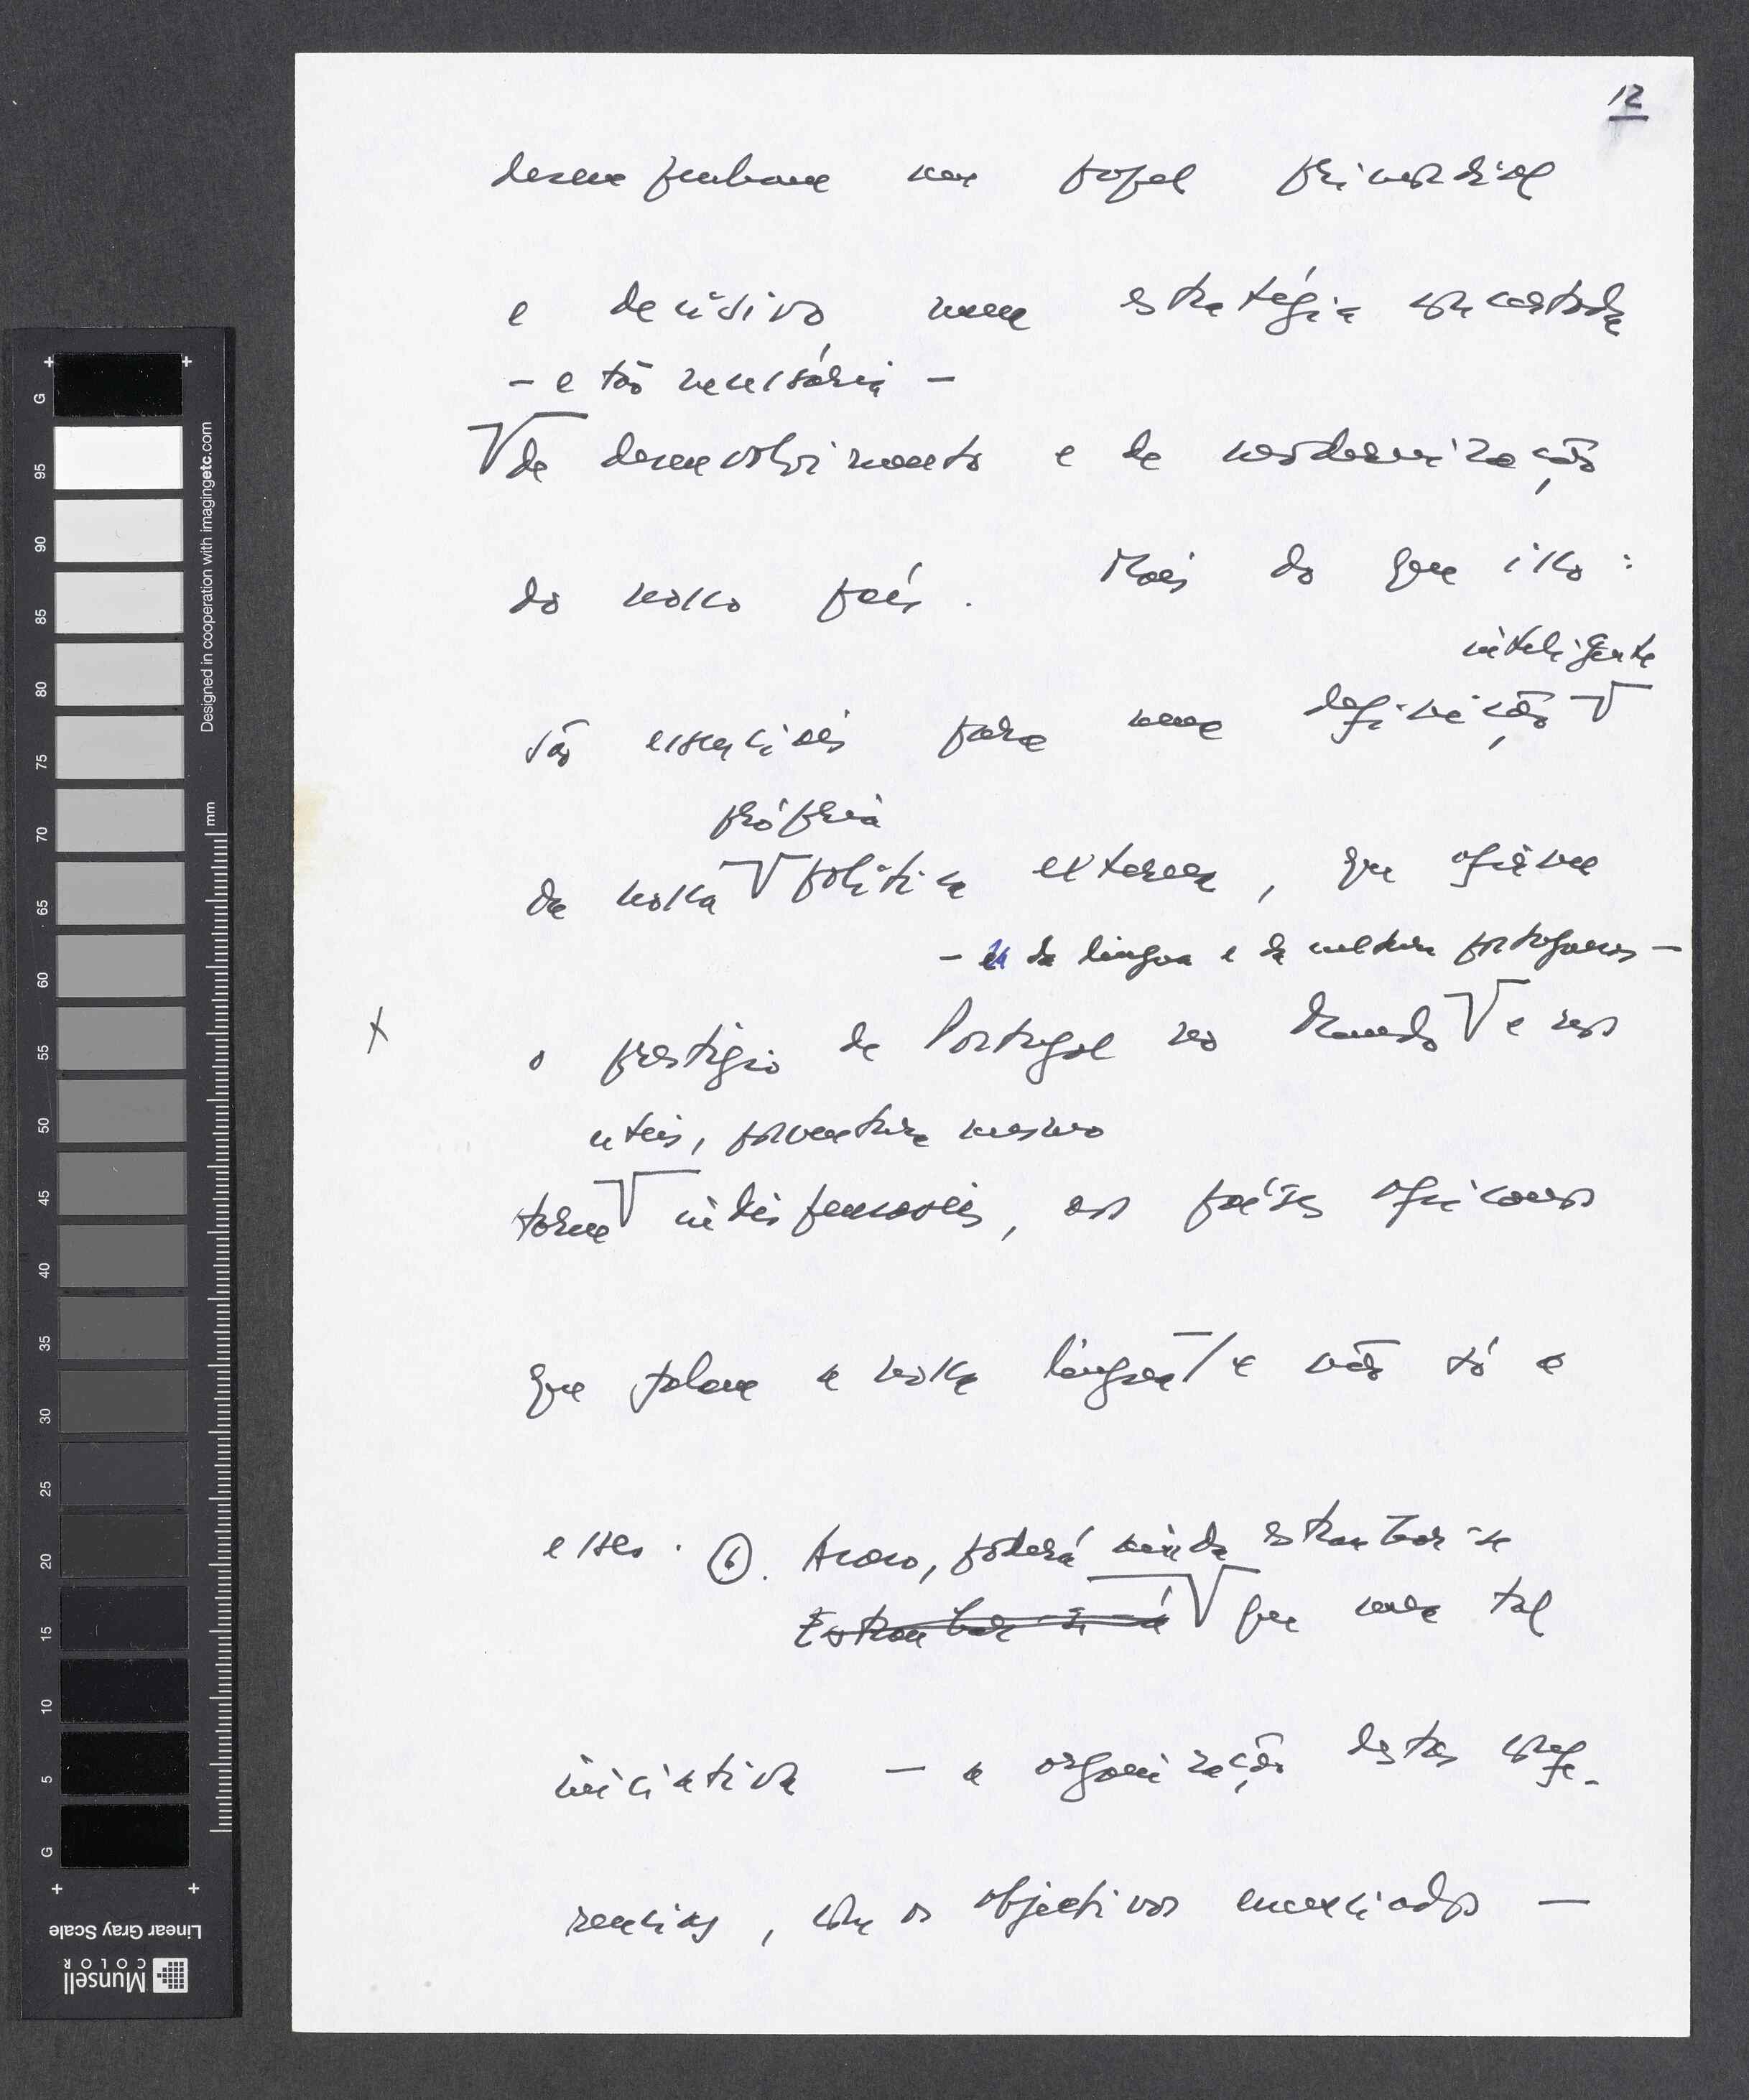 12
desempenham um papel primordial
e decisivo numa estratégia concertada
- e tão necessária -
de desenvolvimento e de modernização
do nosso país. Mais do que isso:
inteligente
são essenciais para uma definição
própria
da nossa política externa, que afirme
- e da língua e da cultura portuguesas -
x
o prestígio de Portugal no Mundo e nos
úteis, porventura mesmo
torne indispensáveis, aos países africanos
que falam a nossa língua/e não só a
esses. 6. Acaso, poderá ainda estranhar-se
Estranhar-se-á que uma tal
iniciativa - a organização destas confe-
rencias, com os objectivos enunciados -
G
95
90
85
80
75
70
65
60
55
50
45
40
35
30
25
20
15
10
5
G
mm
Designed in cooperation with imagingetc.com
Linear Gray Scale
Munsell
COLOR